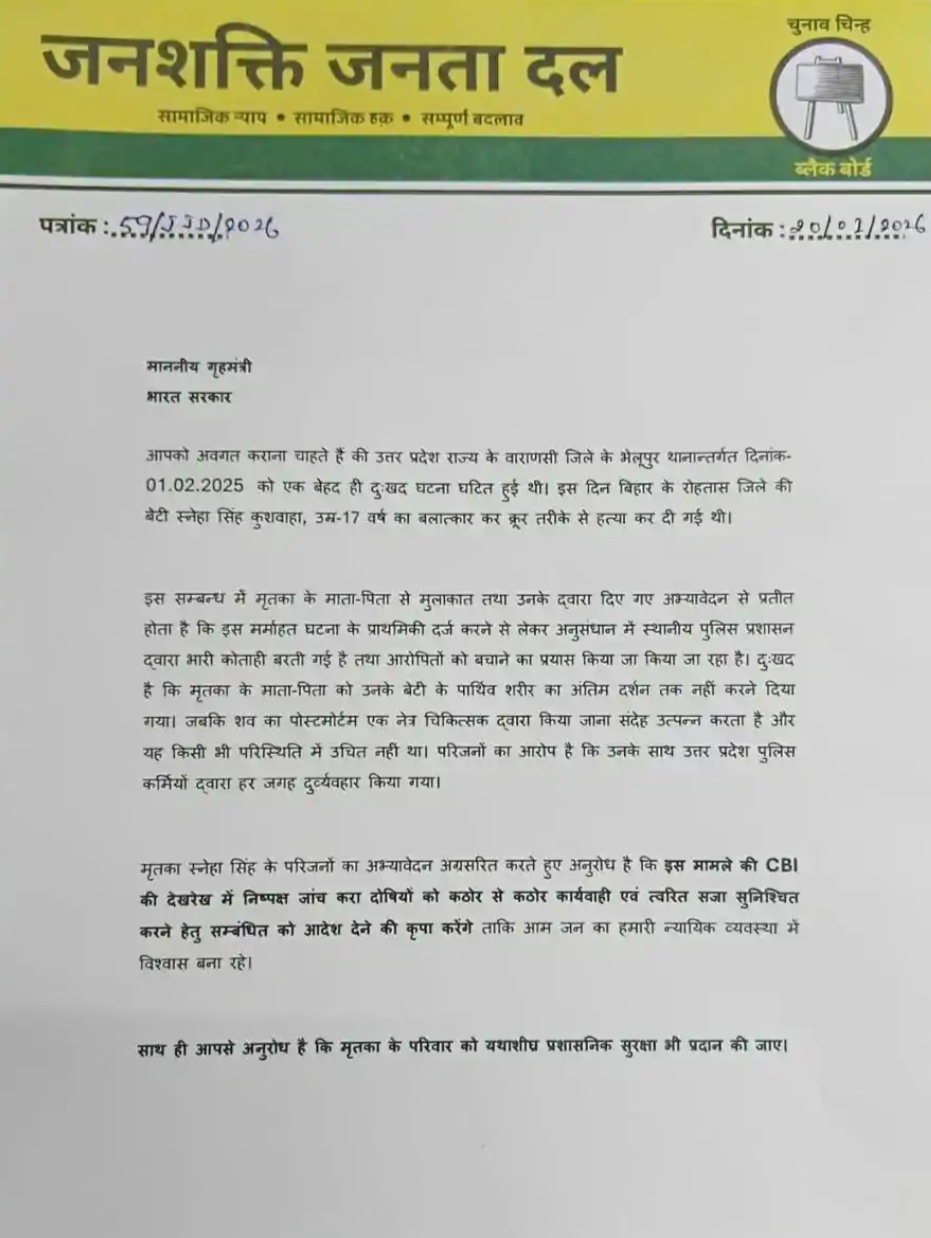 चुनाव चिन्ह
जनशक्ति जनता दल
सामाजिक न्याय • सामाजिक हक़ • सम्पूर्ण बदलाव
ब्लैक बोर्ड
पत्रांक : 59/JJD/2026
दिनांक : 20/02/2026
माननीय गृहमंत्री
भारत सरकार
आपको अवगत कराना चाहते हैं की उत्तर प्रदेश राज्य के वाराणसी जिले के भेलूपुर थानान्तर्गत दिनांक-
01.02.2025 को एक बेहद ही दुःखद घटना घटित हुई थी। इस दिन बिहार के रोहतास जिले की
बेटी स्नेहा सिंह कुशवाहा, उम्र-17 वर्ष का बलात्कार कर क्रूर तरीके से हत्या कर दी गई थी।
इस सम्बन्ध में मृतका के माता-पिता से मुलाकात तथा उनके द्वारा दिए गए अभ्यावेदन से प्रतीत
होता है कि इस मर्माहत घटना के प्राथमिकी दर्ज करने से लेकर अनुसंधान में स्थानीय पुलिस प्रशासन
द्वारा भारी कोताही बरती गई है तथा आरोपितों को बचाने का प्रयास किया जा किया जा रहा है। दुःखद
है कि मृतका के माता-पिता को उनके बेटी के पार्थिव शरीर का अंतिम दर्शन तक नहीं करने दिया
गया। जबकि शव का पोस्टमोर्टम एक नेत्र चिकित्सक द्वारा किया जाना संदेह उत्पन्न करता है और
यह किसी भी परिस्थिति में उचित नहीं था। परिजनों का आरोप है कि उनके साथ उत्तर प्रदेश पुलिस
कर्मियों द्वारा हर जगह दुर्व्यवहार किया गया।
मृतका स्नेहा सिंह के परिजनों का अभ्यावेदन अग्रसरित करते हुए अनुरोध है कि इस मामले की CBI
की देखरेख में निष्पक्ष जांच करा दोषियों को कठोर से कठोर कार्यवाही एवं त्वरित सजा सुनिश्चित
करने हेतु सम्बंधित को आदेश देने की कृपा करेंगे ताकि आम जन का हमारी न्यायिक व्यवस्था में
विश्वास बना रहे।
साथ ही आपसे अनुरोध है कि मृतका के परिवार को यथाशीघ्र प्रशासनिक सुरक्षा भी प्रदान की जाए।